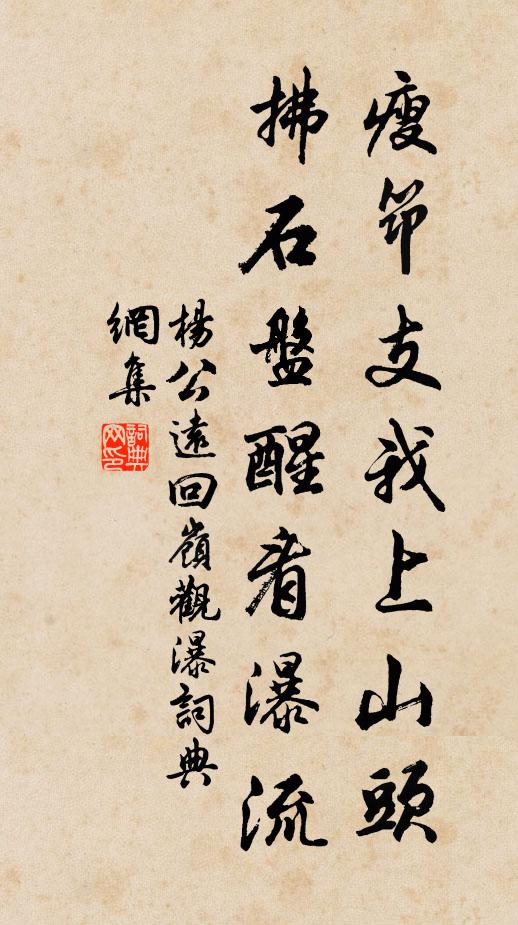 瘦筇支我上山頭
拂石盤醒看瀑流
楊公遠回嶺觀瀑詞典
網集
詞典
网印